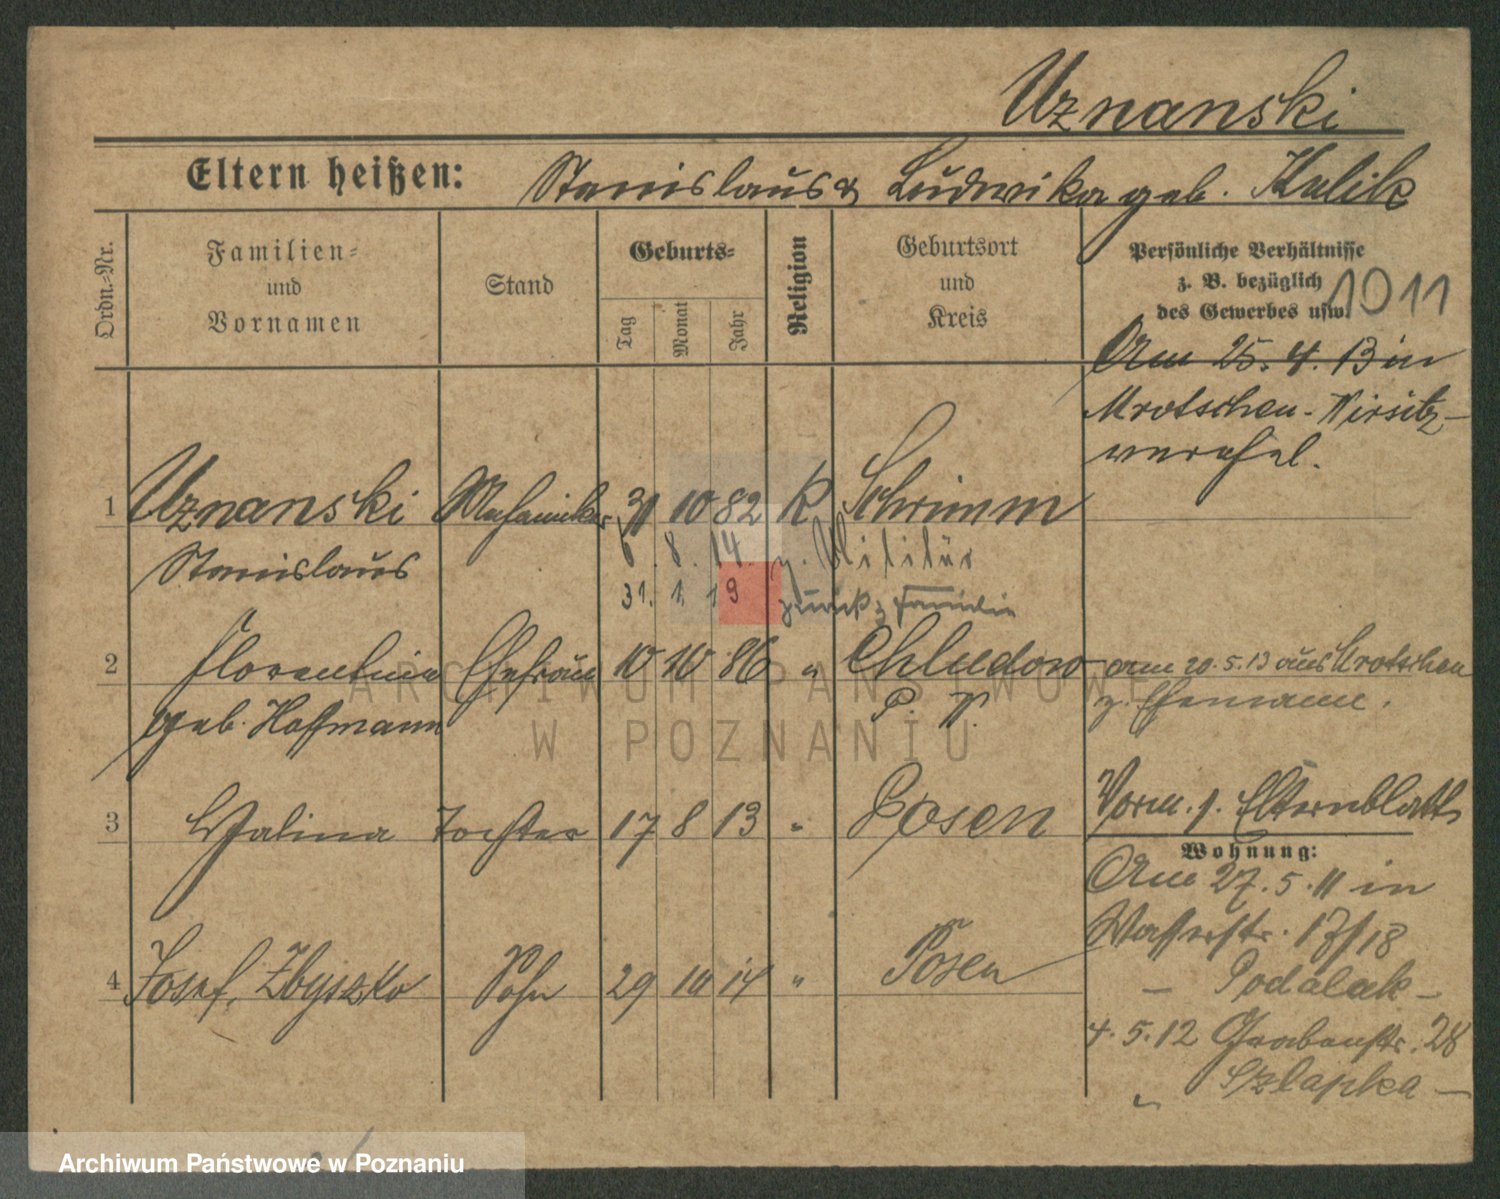 Uznanski
Eltern heißen: Stanislaus & Ludwika geb. Kulik
Ordn.-Nr.
Familien-
und
Vornamen
Stand
Geburts-
Tag
Monat
Jahr
Religion
Geburtsort
und
Kreis
Persönliche Verhältnisse
z. B. bezüglich
des Gewerbes usw.
1011
Am 25. 4. 13 in
Mrotschen - Wirsitz -
1 Uznanski Mechaniker 31 10 82 K Schrimm
Stanislaus
6. 8. 14. z. Militär
31. 1. 19 zurück z Familie
2 Florentine Ehefrau 10 10 86 " Chludowo am 20. 5. 13 aus Mrotschen
geb. Hoffmann P. W. z. Ehemann.
3 Halina Tochter 17 8 13 " Posen
Vorm. s. Elternblatt
Wohnung:
Am 27. 5. 11 in
Wasserstr. 17/18
- Podalak -
4 Josef, Zbyszko Sohn 29 10 14 " Posen
4. 5. 12 Grabenstr. 28
" Szlapka -
ARCHIWUM PAŃSTWOWE
W POZNANIU
Archiwum Państwowe w Poznaniu